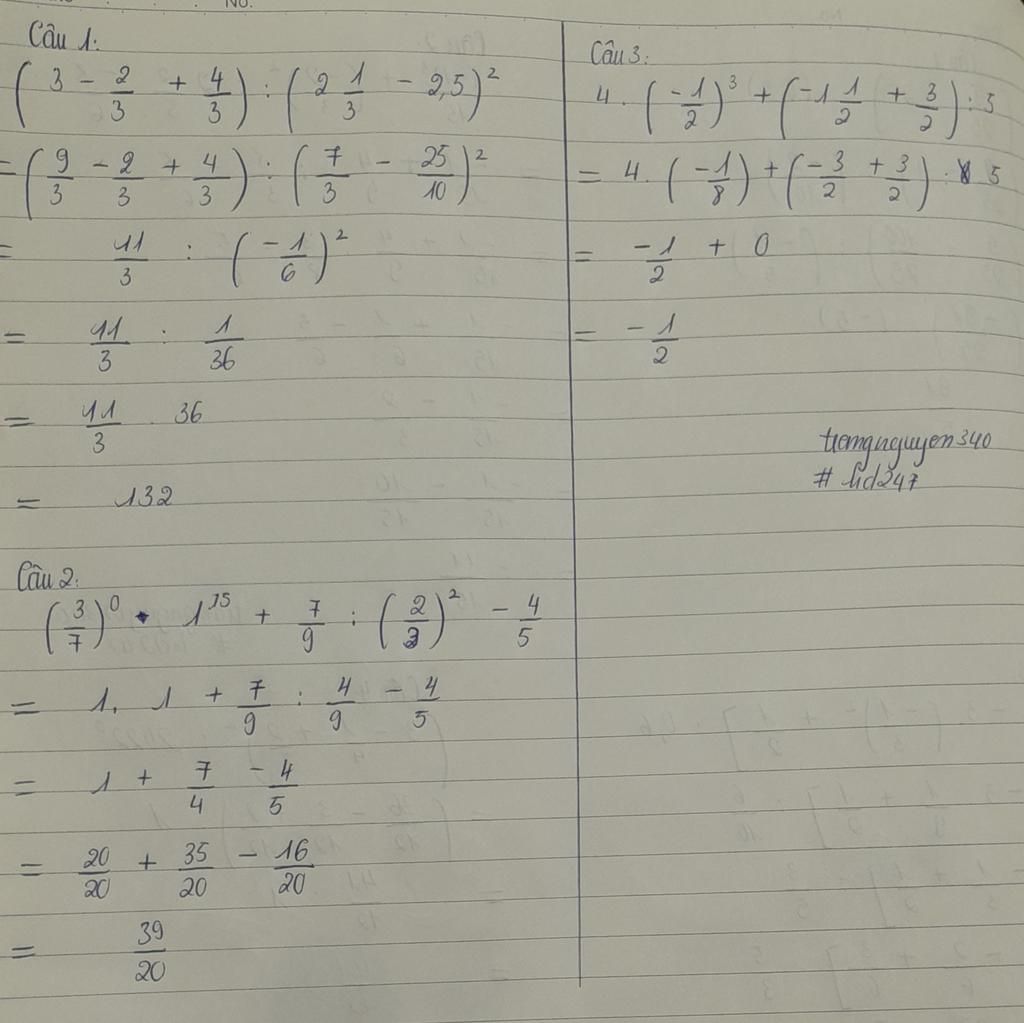 No.
Câu 1:
(3 - 2/3 + 4/3) : (2 1/3 - 2,5)²
= (9/3 - 2/3 + 4/3) : (7/3 - 25/10)²
= 11/3 : (-1/6)²
= 11/3 : 1/36
= 11/3 . 36
= 132
Câu 2:
(3/7)⁰ . 1¹⁵ + 7/9 : (2/3)² - 4/5
= 1. 1 + 7/9 : 4/9 - 4/5
= 1 + 7/4 - 4/5
= 20/20 + 35/20 - 16/20
= 39/20
Câu 3:
4 . (-1/2)³ + (-1 1/2 + 3/2) : 5
= 4 . (-1/8) + (-3/2 + 3/2) : 5
= -1/2 + 0
= -1/2
# hd247